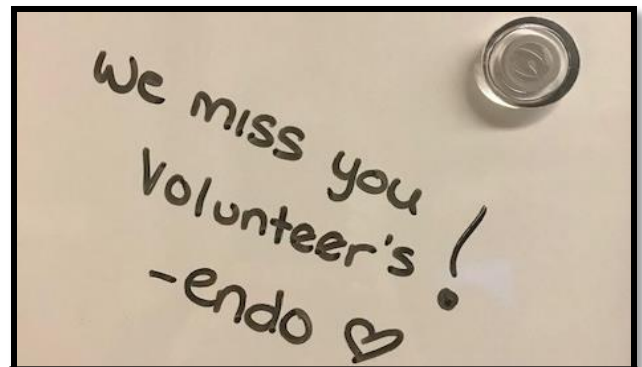 We miss you
Volunteer's!
-endo ♡